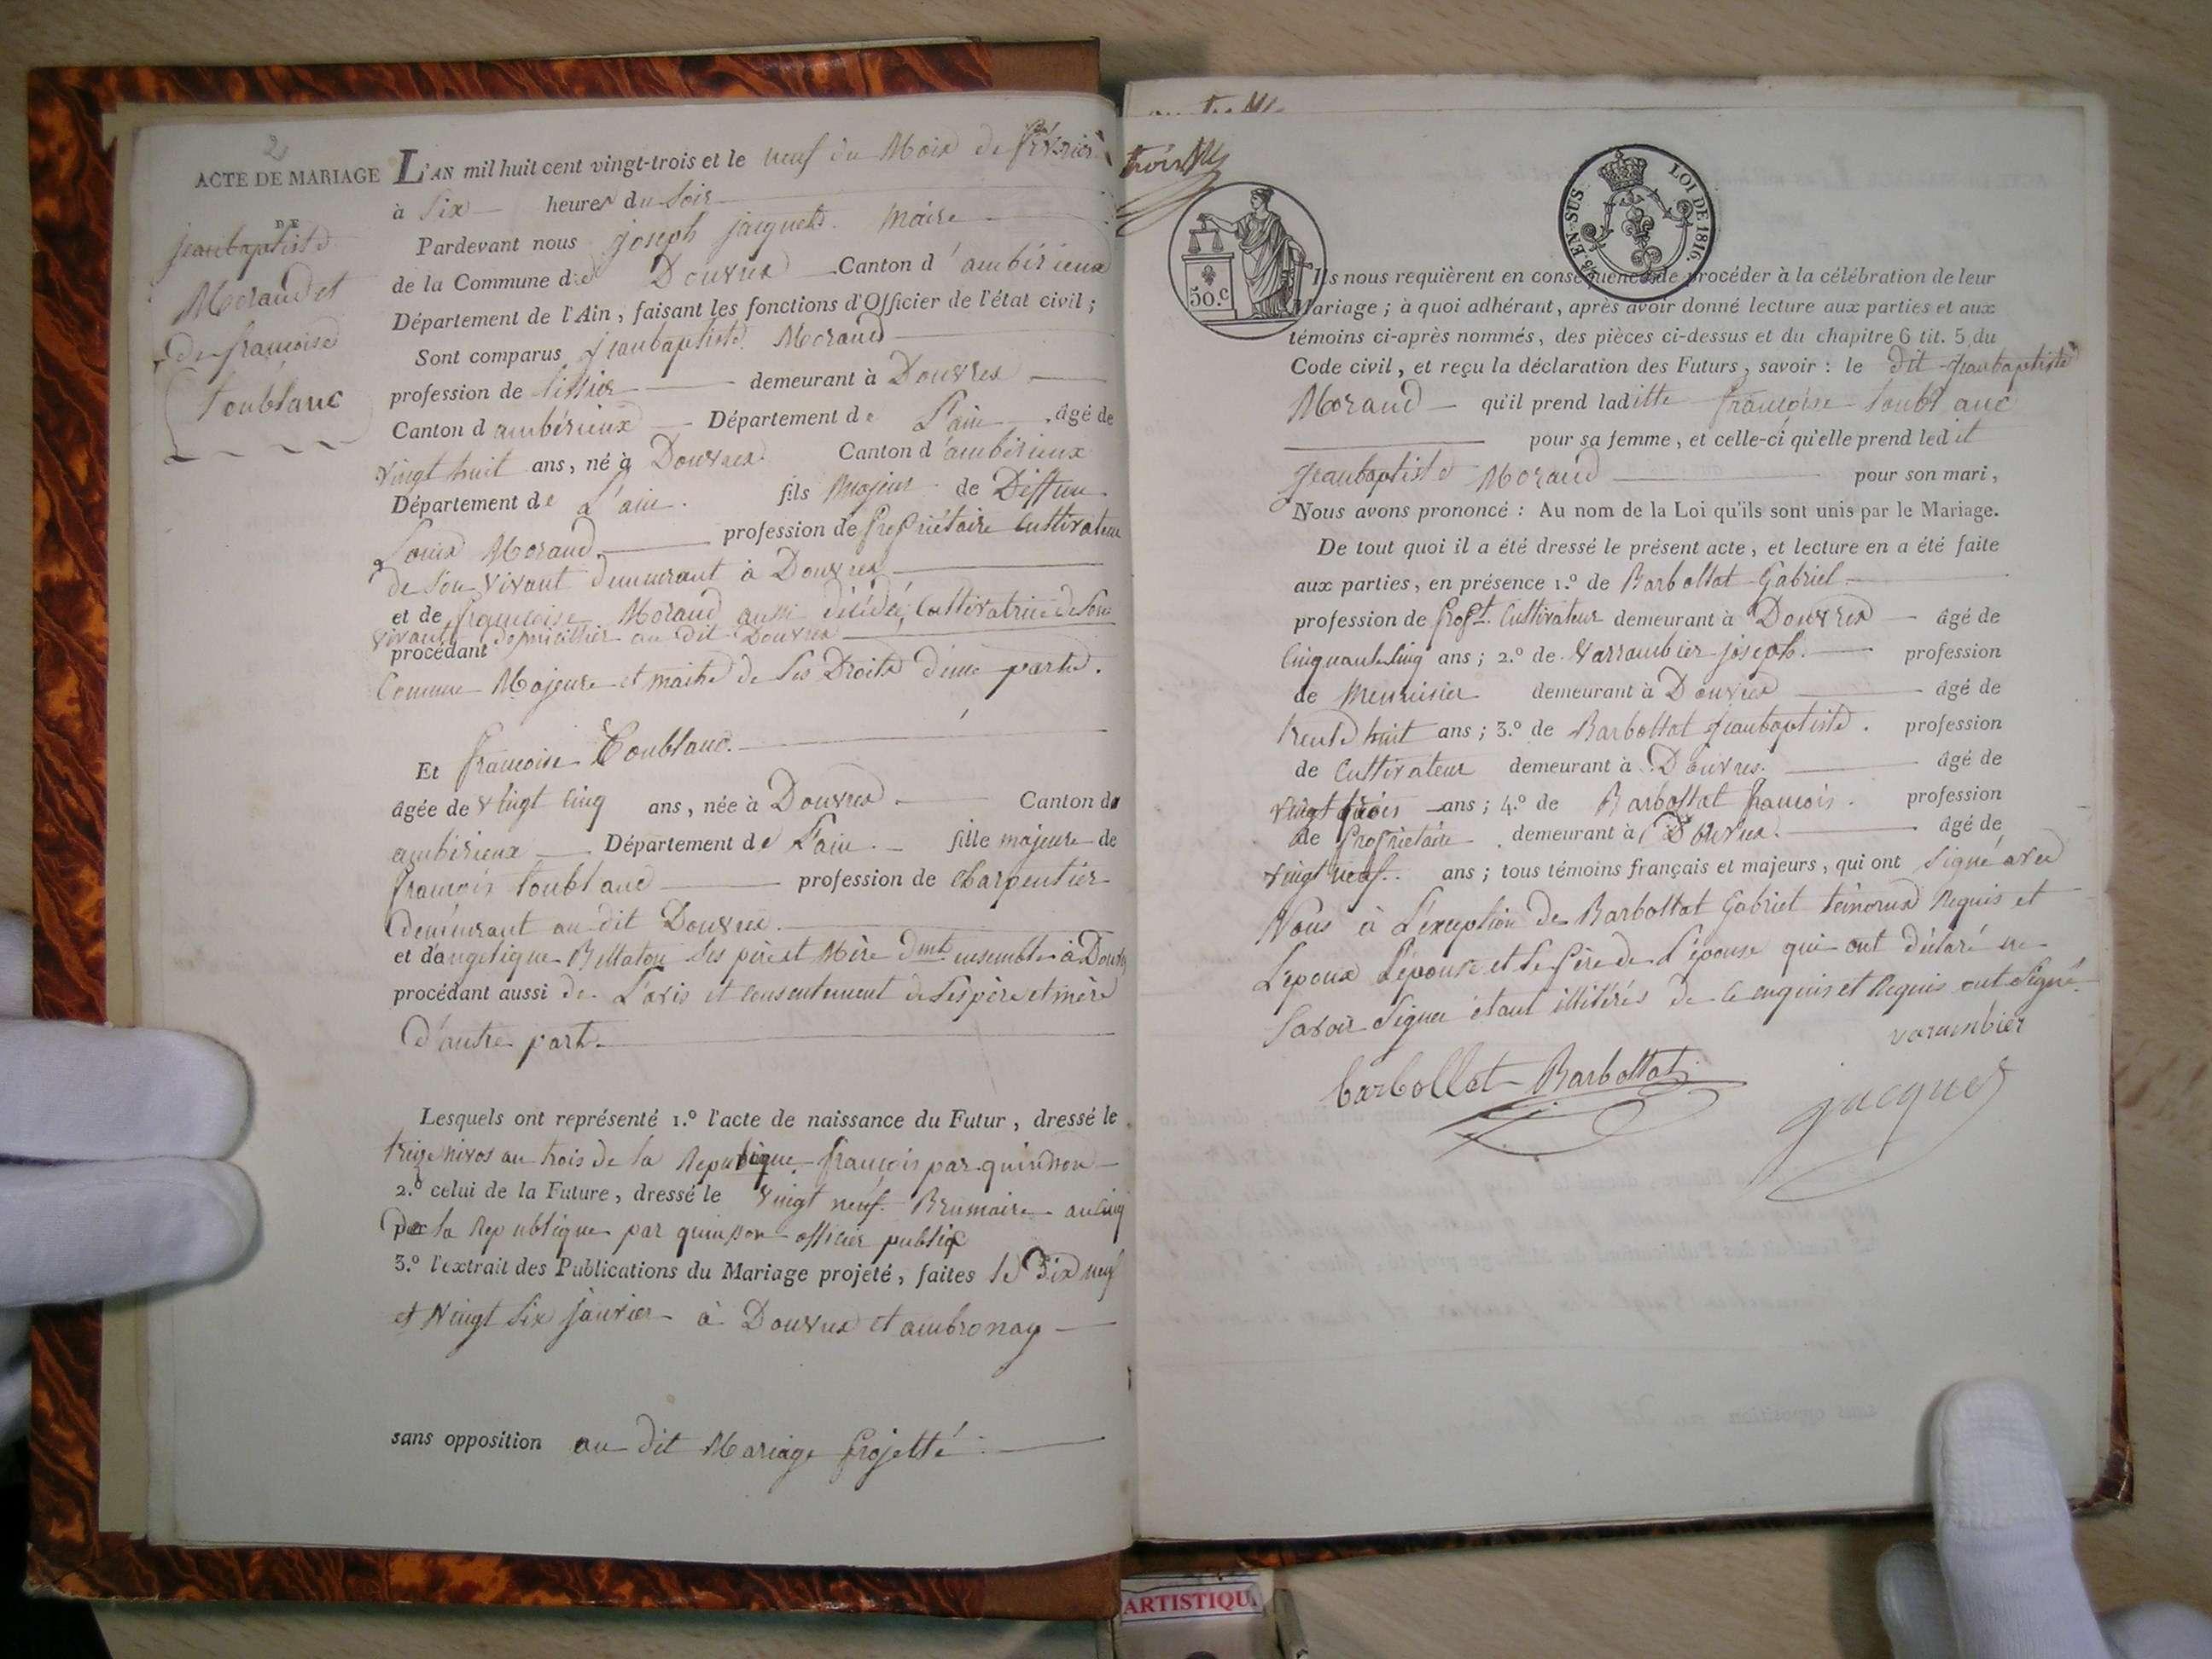 2
ACTE DE MARIAGE
DE
jeanbaptiste
Moraud et
de francoise
Toublanc
L'AN mil huit cent vingt-trois et le neuf du Mois de février
à Six heures du Soir
Pardevant nous joseph jacquet Maire
de la Commune de Douvres Canton d'ambérieux
Département de l'Ain, faisant les fonctions d'Officier de l'état civil;
Sont comparus jeanbaptiste Moraud
profession de tissier demeurant à Douvres
Canton d ambérieux Département de L'ain âgé de
vingt huit ans, né à Douvres. Canton d'ambérieux
Département de L'ain. fils Majeur de Deffun
Louis Moraud. profession de propriétaire Cultivateur
de Son vivant demeurant à Douvres
et de francoise Moraud aussi décédé, Cultivatrice de Son
vivant domicillier au dit Douvres
procédant
Comme Majeure et maitre de Ses Droits d'une parte.
Et francoise Toublanc.
âgée de vingt cinq ans, née à Douvres. Canton d
ambérieux Département de L'ain. fille majeure de
francois Toublanc profession de Charpentier
demeurant au dit Douvres.
et d'angelique Bellaton Ses père et Mère dmt ensemble à Douvres
procédant aussi de L'avis et consentement de Ses père et mère
d'autre part.
Lesquels ont représenté 1.º l'acte de naissance du Futur, dressé le
treize nivos an trois de la Republique francois par quinson
2.º celui de la Future, dressé le vingt neuf Brumaire an cinq
de la Republique par quinson officier publiq
3.º l'extrait des Publications du Mariage projeté, faites le Dix neuf
et Vingt Six janvier à Douvres et ambronay
sans opposition au dit Mariage projetté.
trois
50.c
25.C. EN-SUS. LOI DE 1816.
Ils nous requièrent en conséquence de procéder à la célébration de leur
Mariage; à quoi adhérant, après avoir donné lecture aux parties et aux
témoins ci-après nommés, des pièces ci-dessus et du chapitre 6 tit. 5 du
Code civil, et reçu la déclaration des Futurs, savoir: le dit jeanbaptiste
Moraud qu'il prend laditte francoise Toublanc
pour sa femme, et celle-ci qu'elle prend ledit
jeanbaptiste Moraud pour son mari,
Nous avons prononcé: Au nom de la Loi qu'ils sont unis par le Mariage.
De tout quoi il a été dressé le présent acte, et lecture en a été faite
aux parties, en présence 1.º de Barbollat Gabriel
profession de propt. Cultivateur demeurant à Douvres âgé de
Cinquante Cinq ans; 2.º de Varrambier joseph. profession
de Menuisier demeurant à Douvres âgé de
trente huit ans; 3.º de Barbollat jeanbaptiste. profession
de Cultivateur demeurant à Douvres. âgé de
vingt trois ans; 4.º de Barbollat francois. profession
de Propriétaire demeurant à Douvres. âgé de
vingt neuf. ans; tous témoins français et majeurs, qui ont Signé avec
Nous à L'exception de Barbollat Gabriel témoins Requis et
L'epoux L'épouse et le père de L'épouse qui ont déclaré ne
Savoir Signer étant illitérés de ce enquis et Requis ont Signé.
varambier
barbollat Barbollat
jacquet
ARTISTIQU